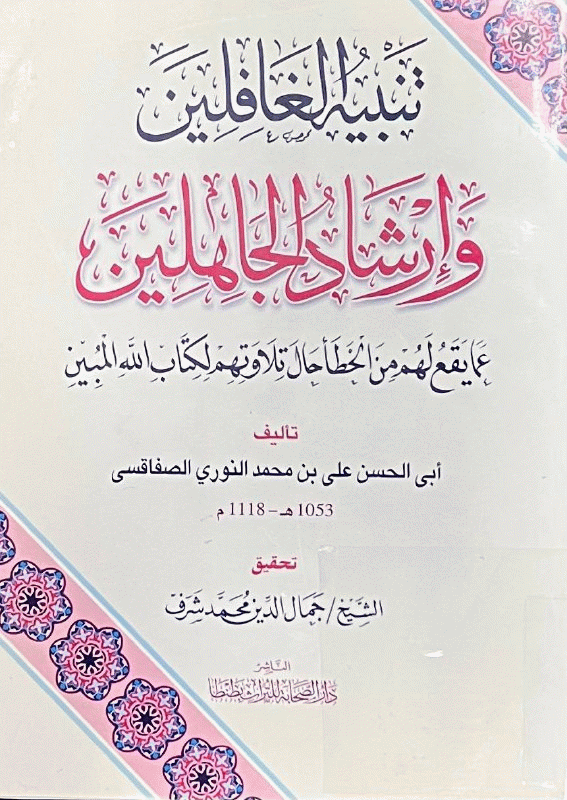 تنبيه الغافلين
وَإرشاد الجاهلين
عما يقع لهم من الخطأ حال تلاوتهم لكتاب الله المبين
تأليف
أبى الحسن على بن محمد النوري الصفاقسى
1053 هـ - 1118 م
تحقيق
الشيخ / جمال الدين محمد شرف
الناشر
دار الصحابة للتراث بطنطا